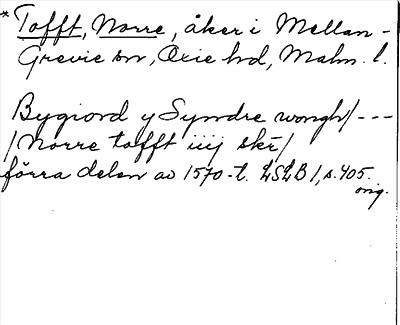 * Tofft, Norre, åker i Mellan-
Grevie sn, Oxie hd, Malm. l.
Bygiord y Syndre wongh/ ---
/Norre tofft iiij skr/
förra delen av 1570-t. LSLB 1, s. 405.
orig.